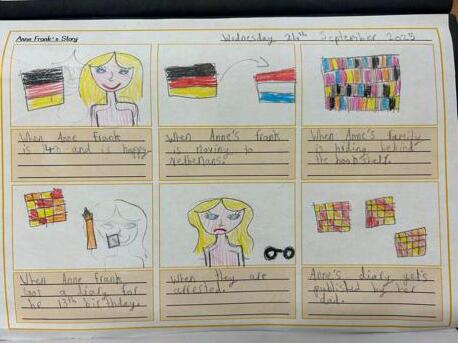 Anne Frank's Story
Wednesday 24th September 2025
When Anne frank
is 14th and is happy
When Anne's frank
is moving to
Netherlans.
When Anne's family
is hiding behind
the bookshelf.
When Anne frank
got a diary for
her 13th birthday.
When they are
arrested.
Anne's diary get's
published by her
dad.